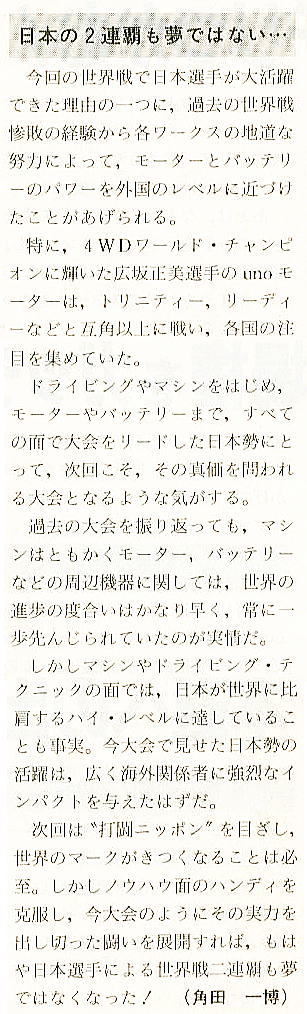 日本の2連覇も夢ではない…
今回の世界戦で日本選手が大活躍
できた理由の一つに，過去の世界戦
惨敗の経験から各ワークスの地道な
努力によって，モーターとバッテリ
ーのパワーを外国のレベルに近づけ
たことがあげられる。
特に，4WDワールド・チャンピ
オンに輝いた広坂正美選手のunoモ
ーターは，トリニティー，リーディ
ーなどと互角以上に戦い，各国の注
目を集めていた。
ドライビングやマシンをはじめ，
モーターやバッテリーまで，すべて
の面で大会をリードした日本勢にと
って，次回こそ，その真価を問われ
る大会となるような気がする。
過去の大会を振り返っても，マシ
ンはともかくモーター，バッテリー
などの周辺機器に関しては，世界の
進歩の度合いはかなり早く，常に一
歩先んじられていたのが実情だ。
しかしマシンやドライビング・テ
クニックの面では，日本が世界に比
肩するハイ・レベルに達しているこ
とも事実。今大会で見せた日本勢の
活躍は，広く海外関係者に強烈なイ
ンパクトを与えたはずだ。
次回は〝打闘ニッポン〟を目ざし，
世界のマークがきつくなることは必
至。しかしノウハウ面のハンディを
克服し，今大会のようにその実力を
出し切った闘いを展開すれば，もは
や日本選手による世界戦二連覇も夢
ではなくなった！　（角田　一博）